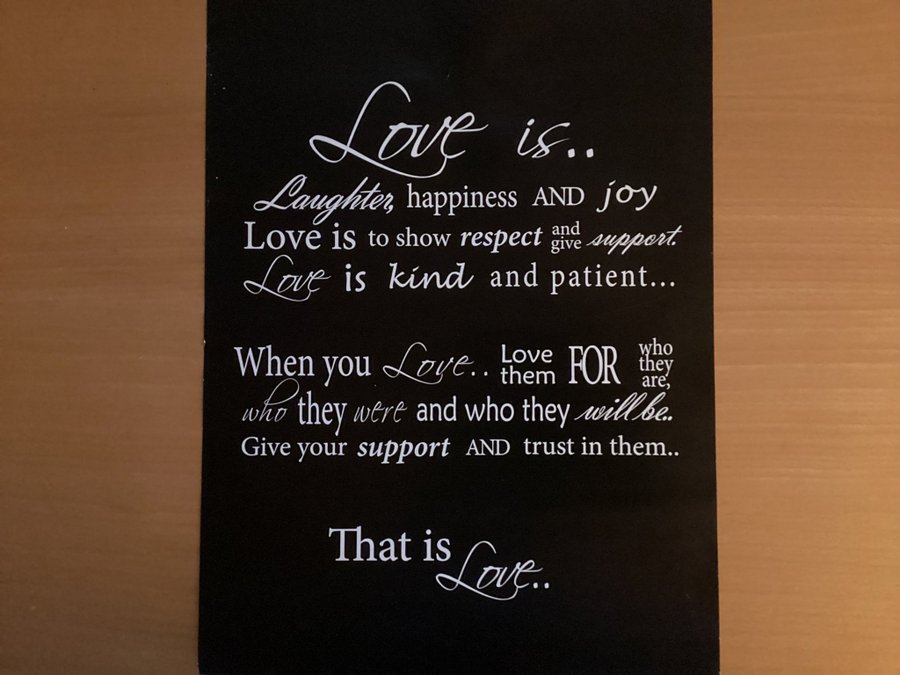 Love is..
Laughter, happiness AND joy
Love is to show respect and give support.
Love is kind and patient...
When you Love.. Love them FOR who they are,
who they were and who they will be..
Give your support AND trust in them..
That is Love..